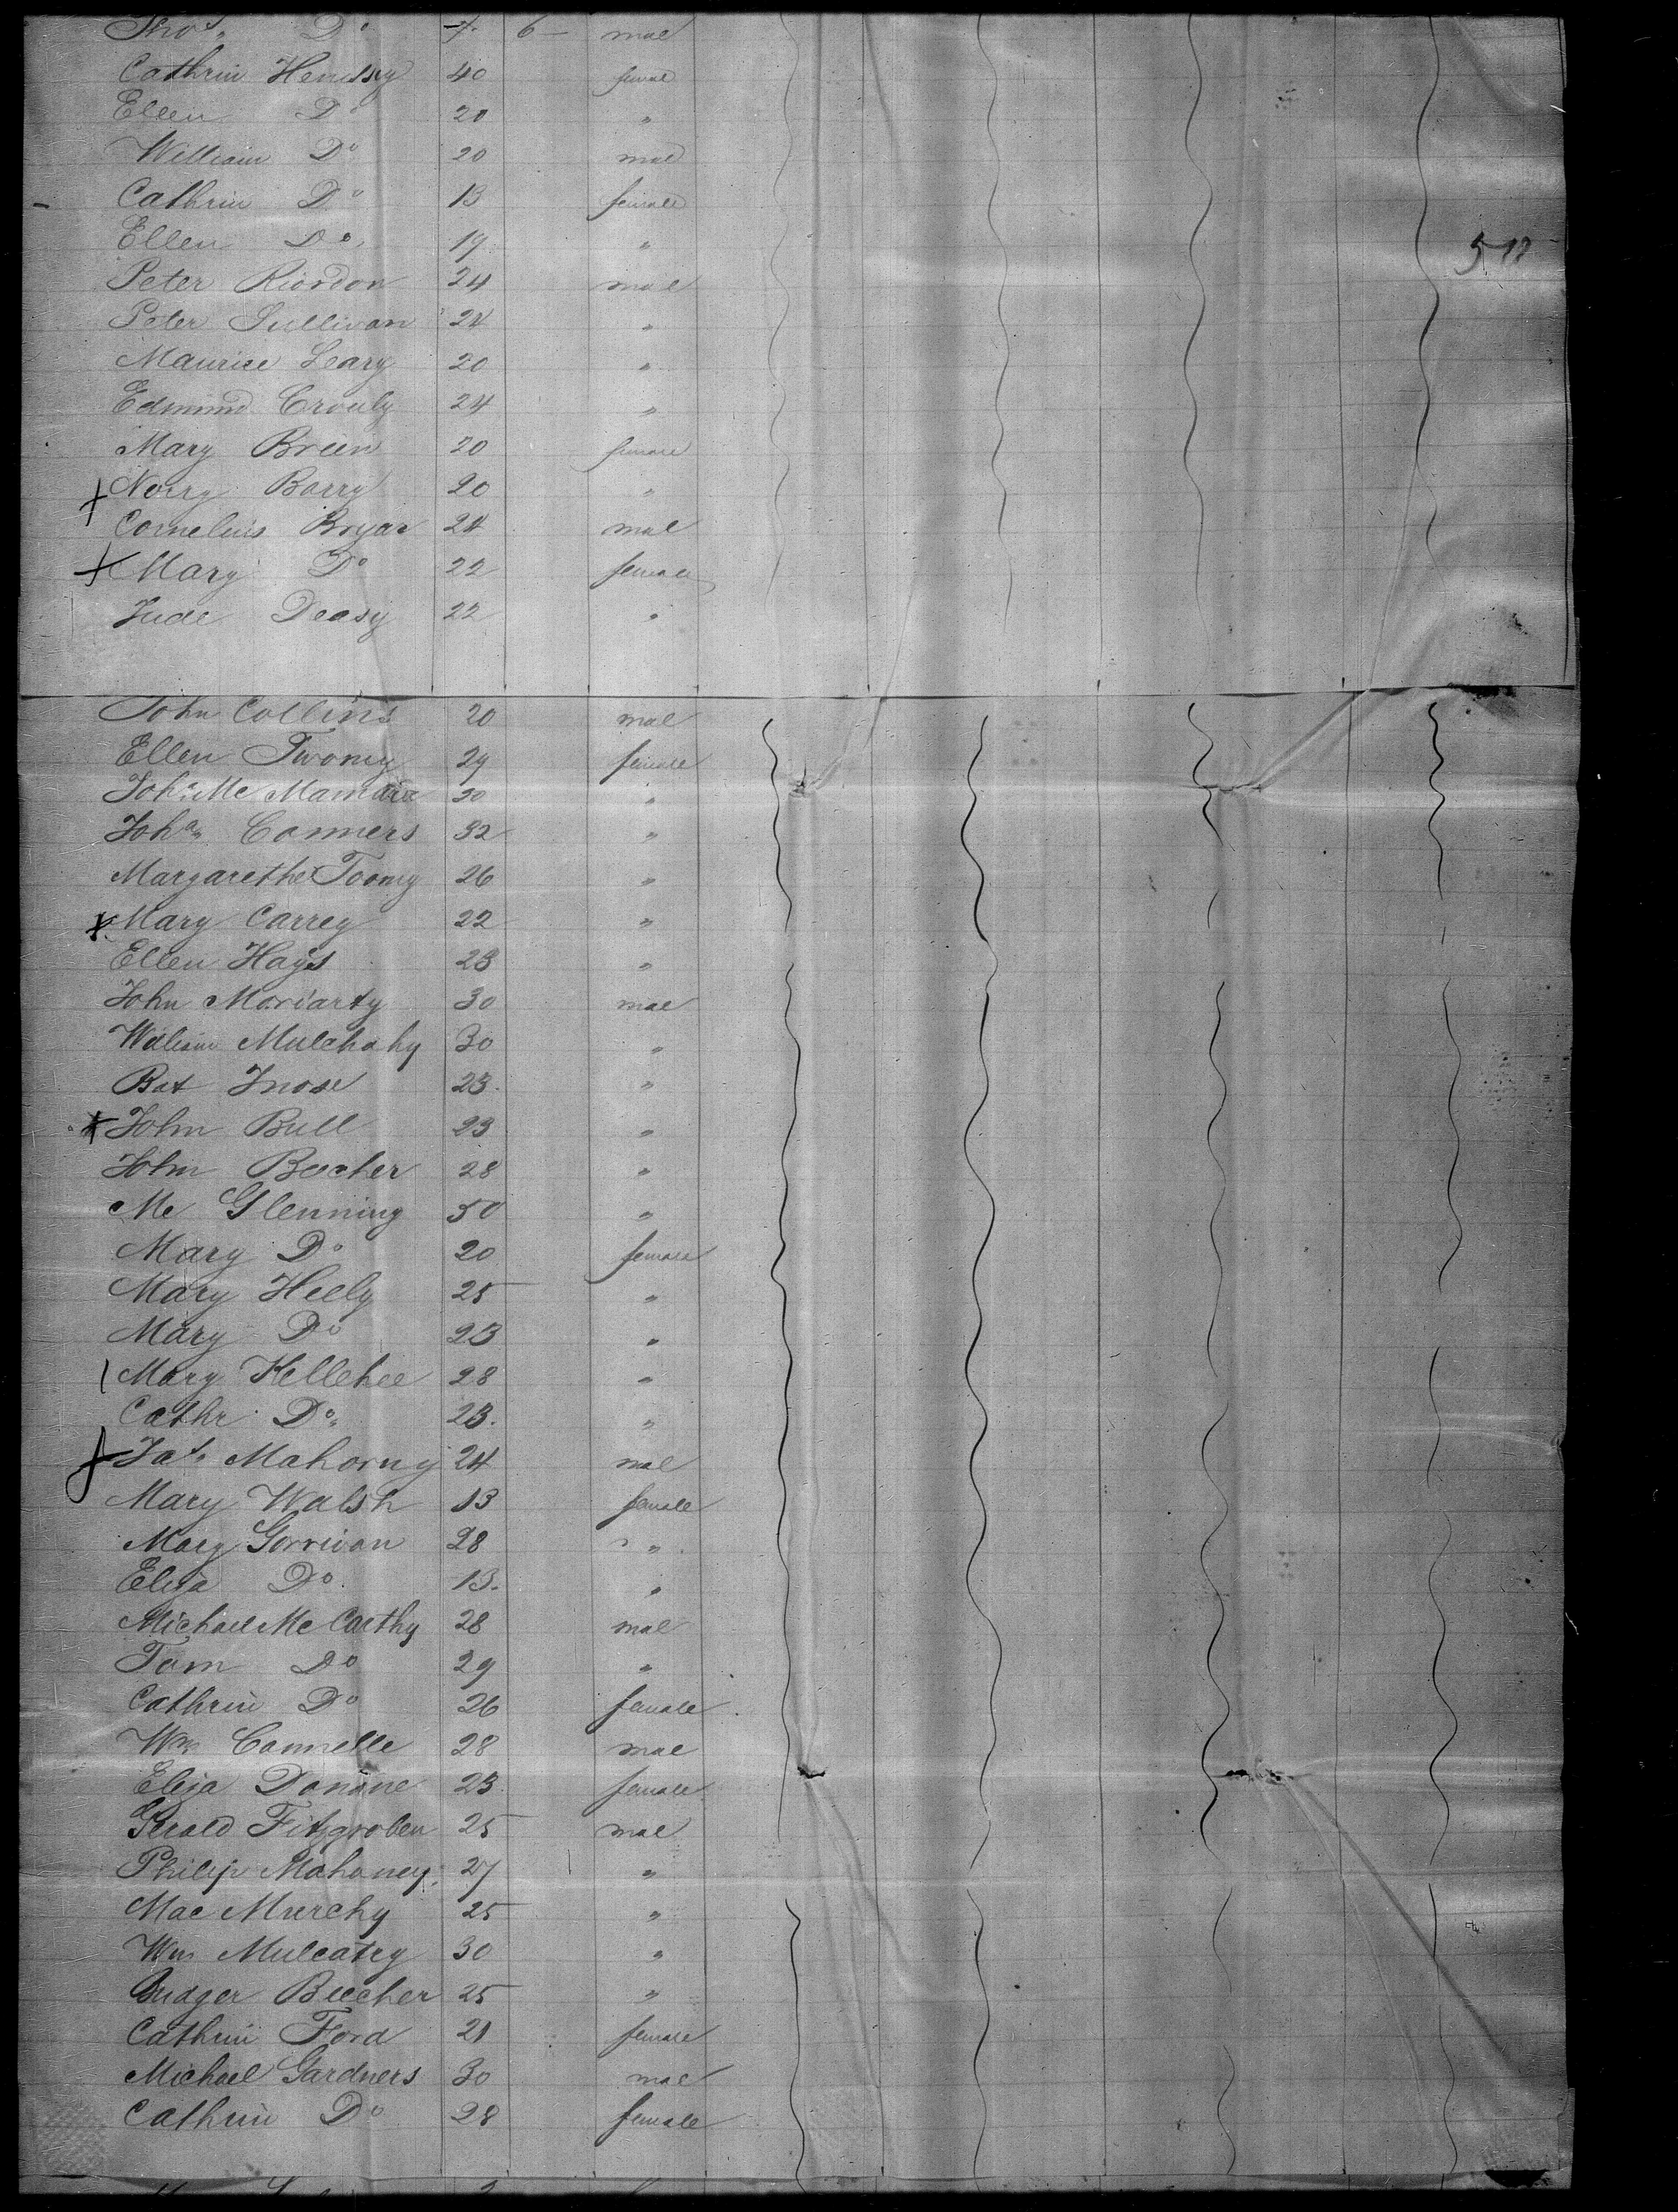 Thos. Do 7 6 mal
Cathrin Hendsey 40 femal
Ellen Do 20 "
William Do 20 mal
Cathrin Do 13 female
Ellen Do. 19 "
Peter Riordon 24 mal
517
Peter Sullivan 24 "
Maurice Leary 20 "
Edmund Crouly 24 "
Mary Breen 20 female
Norry Barry 20 "
Cornelius Bryan 24 mal
Mary Do 22 female
Jude Deasy 22 "
John Collins 20 mal
Ellen Twomy 29 female
Joha. Mc 30 "
Joha. Conners 32 "
Margarethe Toomy 26 "
Mary Carrey 22 "
Ellen Hays 23 "
John Moriarty 30 mal
William Mulchahy 30 "
Bat 23 "
John Bull 23 "
John Beecher 28 "
Mc Glenning 50 "
Mary Do 20 female
Mary Heely 25 "
Mary Do 23 "
Mary Kellehee 28 "
Cathr Do. 23. "
Mahorny 24 mal
Mary Walsh 13 female
Mary Gorrivan 28 "
Eliza Do. 13. "
Michael Mc Carthy 28 mal
Tom Do 29 "
Cathrin Do 26 female
Wm Connelle 28 mal
Eliza Donane 23 female
Gerald 25 mal
Philip Mahoney. 27 "
Mac Murchy 25 "
Wm Mulcatey 30 "
Beecher 25 "
Cathrin Ford 21 female
Michael Gardners 30 mal
Cathrin Do 28 female